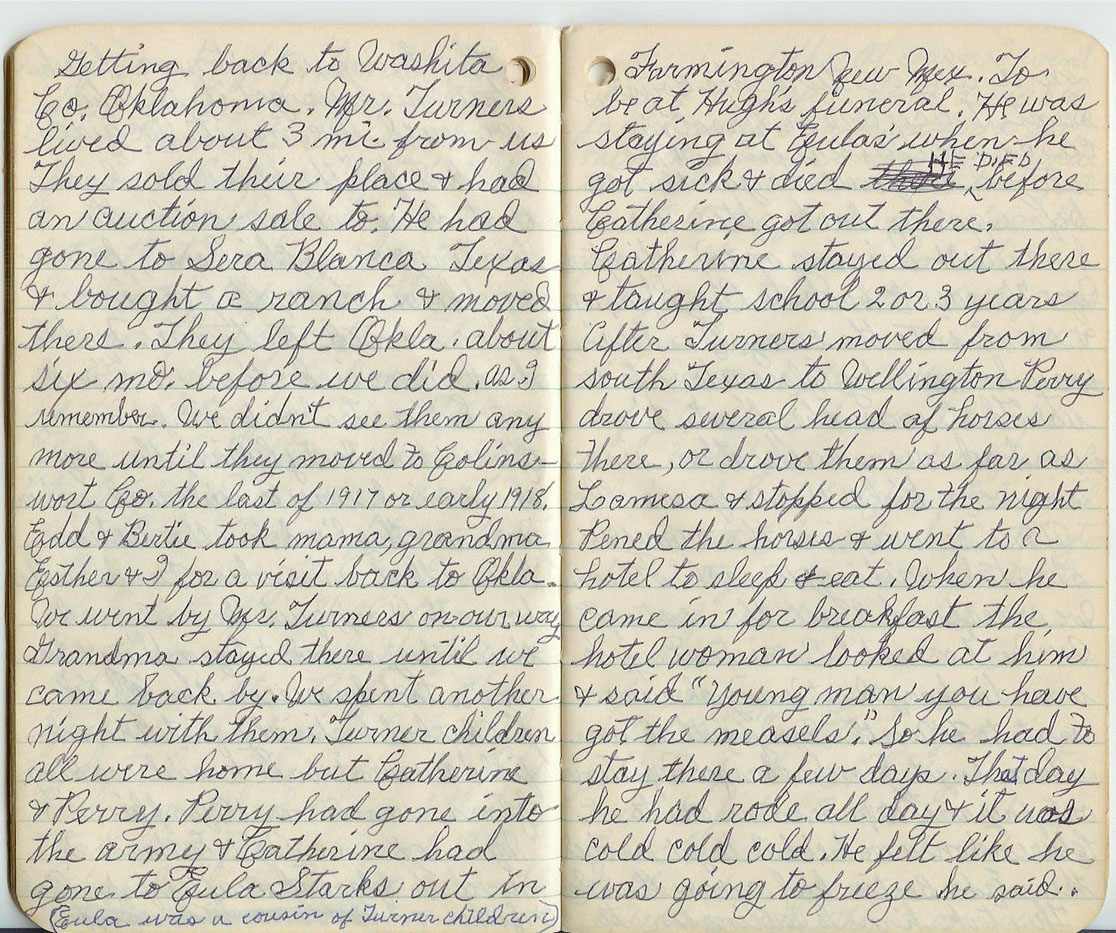 Getting back to Washita
Co. Oklahoma. Mr. Turners
lived about 3 mi. from us
They sold their place & had
an auction sale to. He had
gone to Sera Blanca Texas
& bought a ranch & moved
there. They left Okla. about
six mo. before we did, as I
remember. We didn't see them any
more until they moved to Colins-
wort Co. the last of 1917 or early 1918.
Edd & Bertie took mama, grandma
Esther & I for a visit back to Okla.
We went by Mr. Turners on our way
Grandma stayed there until we
came back by. We spent another
night with them. Turner children
all were home but Catherine
& Perry. Perry had gone into
the army & Catherine had
gone to Eula Starks out in
(Eula was a cousin of Turner children)
Farmington New Mex. To
be at Hugh's funeral. He was
staying at Eula's when he
got sick & died HE DIED before
Catherine got out there.
Catherine stayed out there
& taught school 2 or 3 years
After Turners moved from
south Texas to Wellington Perry
drove several head of horses
there, or drove them as far as
Lamesa & stopped for the night
Pened the horses & went to a
hotel to sleep & eat. When he
came in for breakfast the
hotel woman looked at him
& said "Young man you have
got the measels". So he had to
stay there a few days. That day
he had rode all day & it was
cold cold cold. He felt like he
was going to freeze he said.